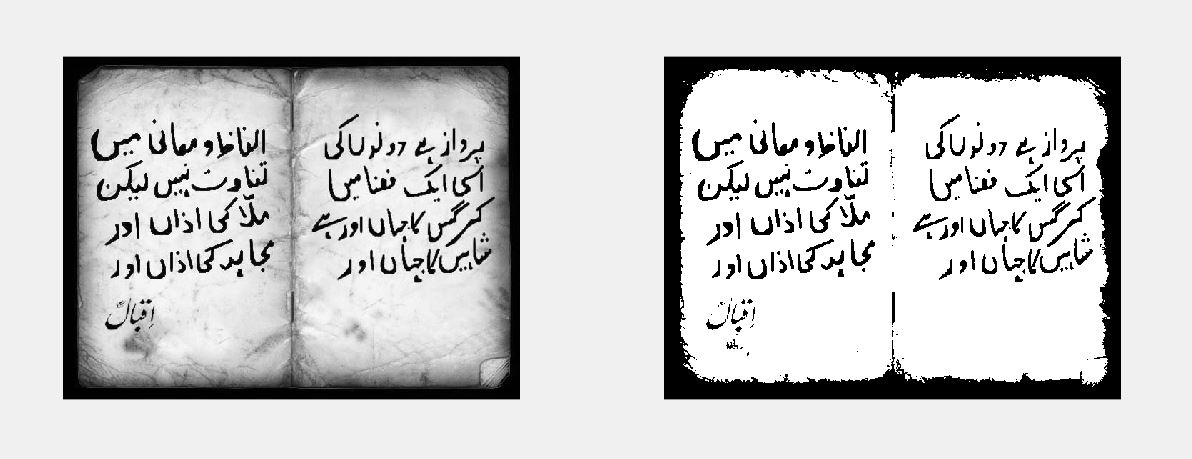 پرواز ہے دونوں کی
اسی ایک فضا میں
کرگس کا جہاں اور ہے
شاہیں کا جہاں اور
الفاظ و معانی میں
تفاوت نہیں لیکن
ملّا کی اذاں اور
مجاہد کی اذاں اور
اِقبالؔ
پرواز ہے دونوں کی
اسی ایک فضا میں
کرگس کا جہاں اور ہے
شاہیں کا جہاں اور
الفاظ و معانی میں
تفاوت نہیں لیکن
ملّا کی اذاں اور
مجاہد کی اذاں اور
اِقبالؔ